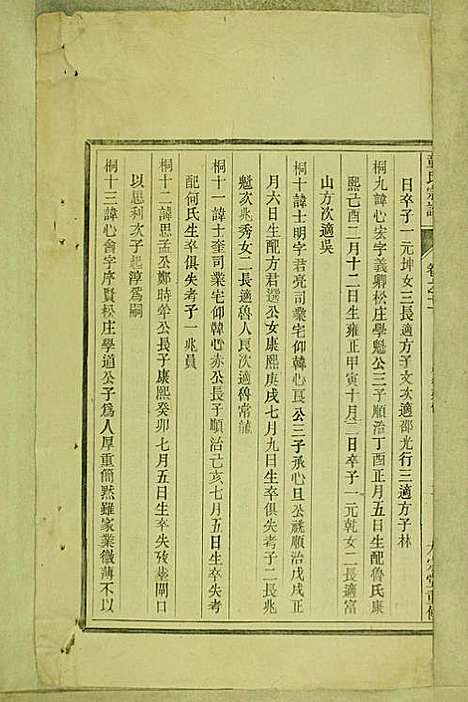 日卒子一元坤女三長適方子文次適邵光行三適方子林
桐九諱心宋字義卿松庄學魁公三子順治丁酉正月五日生配魯氏康
熙己酉二月十二日生雍正甲寅十月二日卒子一元乾女二長適富
山方次適吳
桐十諱士明字君亮司業宅仰韓心良公三子承心旦公祧順治戊戌正
月六日生配方君選公女康熙庚戌七月九日生卒俱失考子二長兆
魁次兆秀女二長適魯人良次適魯常龍
桐十一諱士奎司業宅仰韓心赤公長子順治己亥七月五日生卒失考
配何氏生卒俱失考子一兆員
桐十二諱思孟公鄭時犖公長子康熙癸卯七月五日生卒失攷葬閘口
以思利次子起淳爲嗣
桐十三諱心會字序賢松庄學道公子爲人厚重簡默雖家業微薄不以